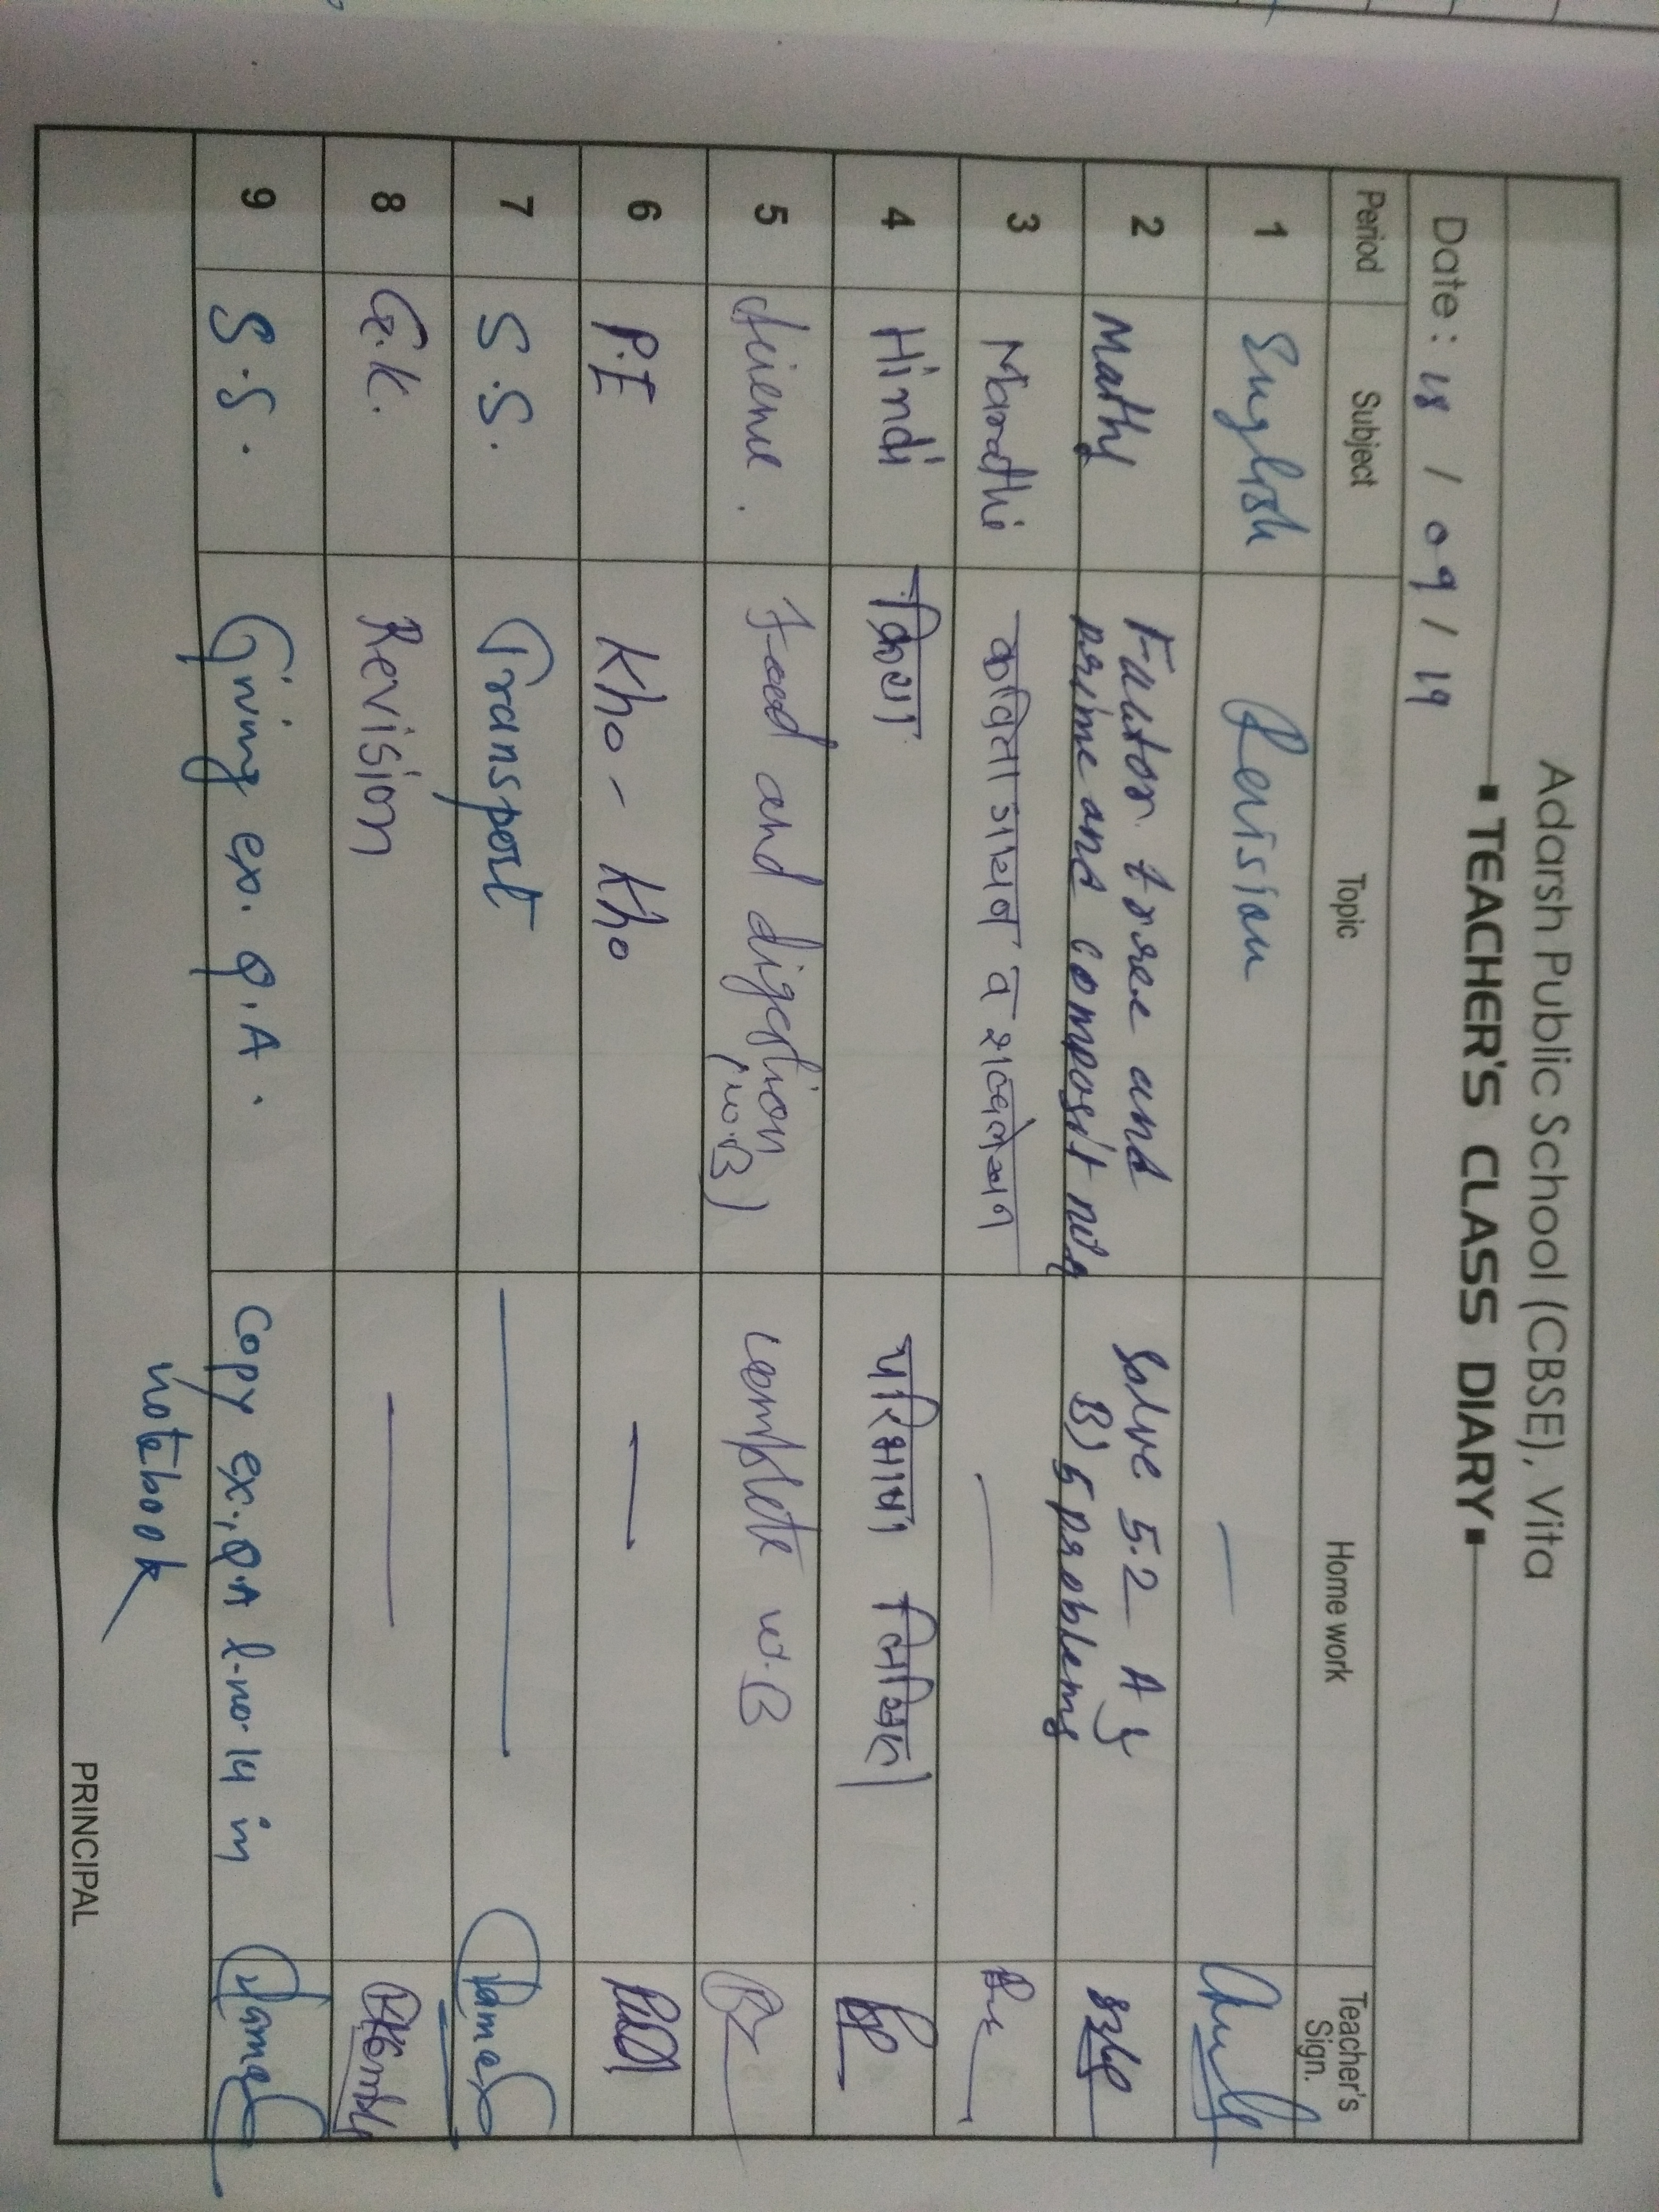 Adarsh Public School (CBSE), Vita
TEACHER'S CLASS DIARY
Date: 18 / 09 / 19
Period Subject Topic Home work Teacher's Sign.
1 English Revision —
2 Maths Factor tree and prime and composit no's Solve 5.2 A & B) 5 problems
3 Marathi कविता गायन व —
4 Hindi क्रिया परिभाषा लिखिए।
5 Science. Food and digestion (w.B) complete w.B
6 P.E Kho - Kho —
7 S.S. Transport —
8 G.K. Revision —
9 S.S. Giving ex. Q.A. Copy ex., Q.A l-no-14 in notebook
PRINCIPAL